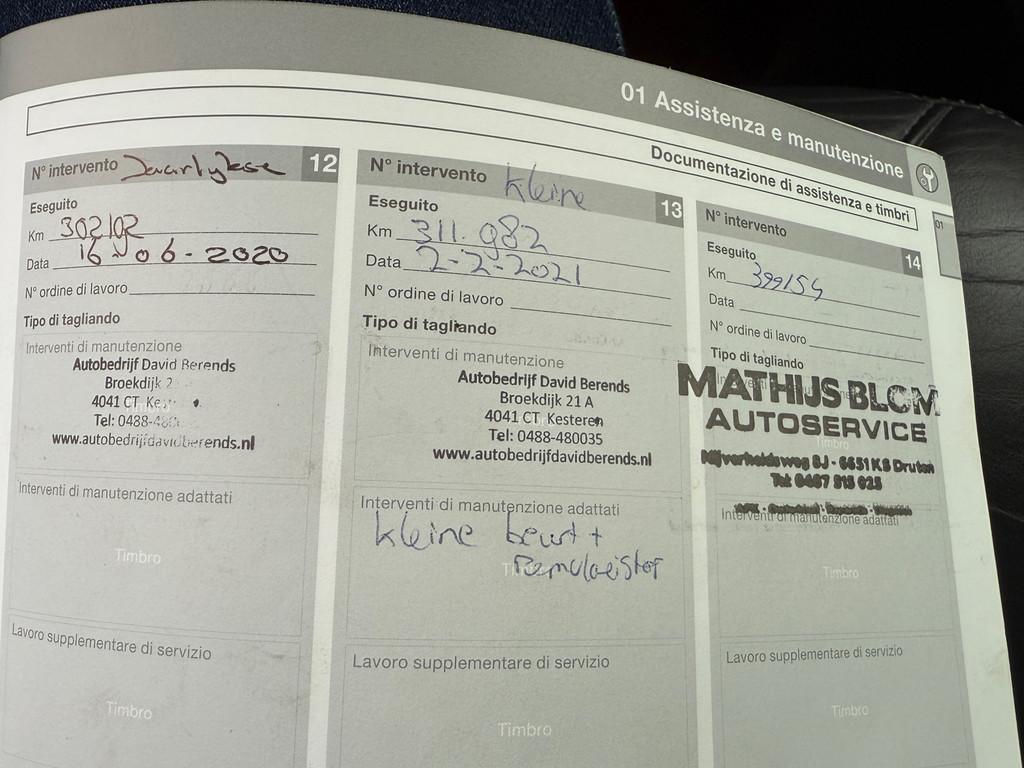 01 Assistenza e manutenzione
Documentazione di assistenza e timbri
01
N° intervento Jaarlijkse 12
Eseguito
Km 302102
Data 16-06-2020
N° ordine di lavoro
Tipo di tagliando
Interventi di manutenzione
Autobedrijf David Berends
Broekdijk 2
4041 CT
Tel: 0488-48
www.autobedrijfdavidberends.nl
Interventi di manutenzione adattati
Timbro
Lavoro supplementare di servizio
Timbro
N° intervento Kleine 13
Eseguito
Km 311.982
Data 2-2-2021
N° ordine di lavoro
Tipo di tagliando
Interventi di manutenzione
Autobedrijf David Berends
Broekdijk 21 A
4041 CT Kesteren
Tel: 0488-480035
www.autobedrijfdavidberends.nl
Interventi di manutenzione adattati
kleine beurt +
Remvloeistof
Lavoro supplementare di servizio
Timbro
N° intervento 14
Eseguito
Km 399154
Data
N° ordine di lavoro
Tipo di tagliando
MATHIJS BLOM
AUTOSERVICE
Timbro
Nijverheidsweg 8J - 6651 KS Druten
Tel: 0487 515 025
Interventi di manutenzione adattati
Timbro
Lavoro supplementare di servizio
Timbro